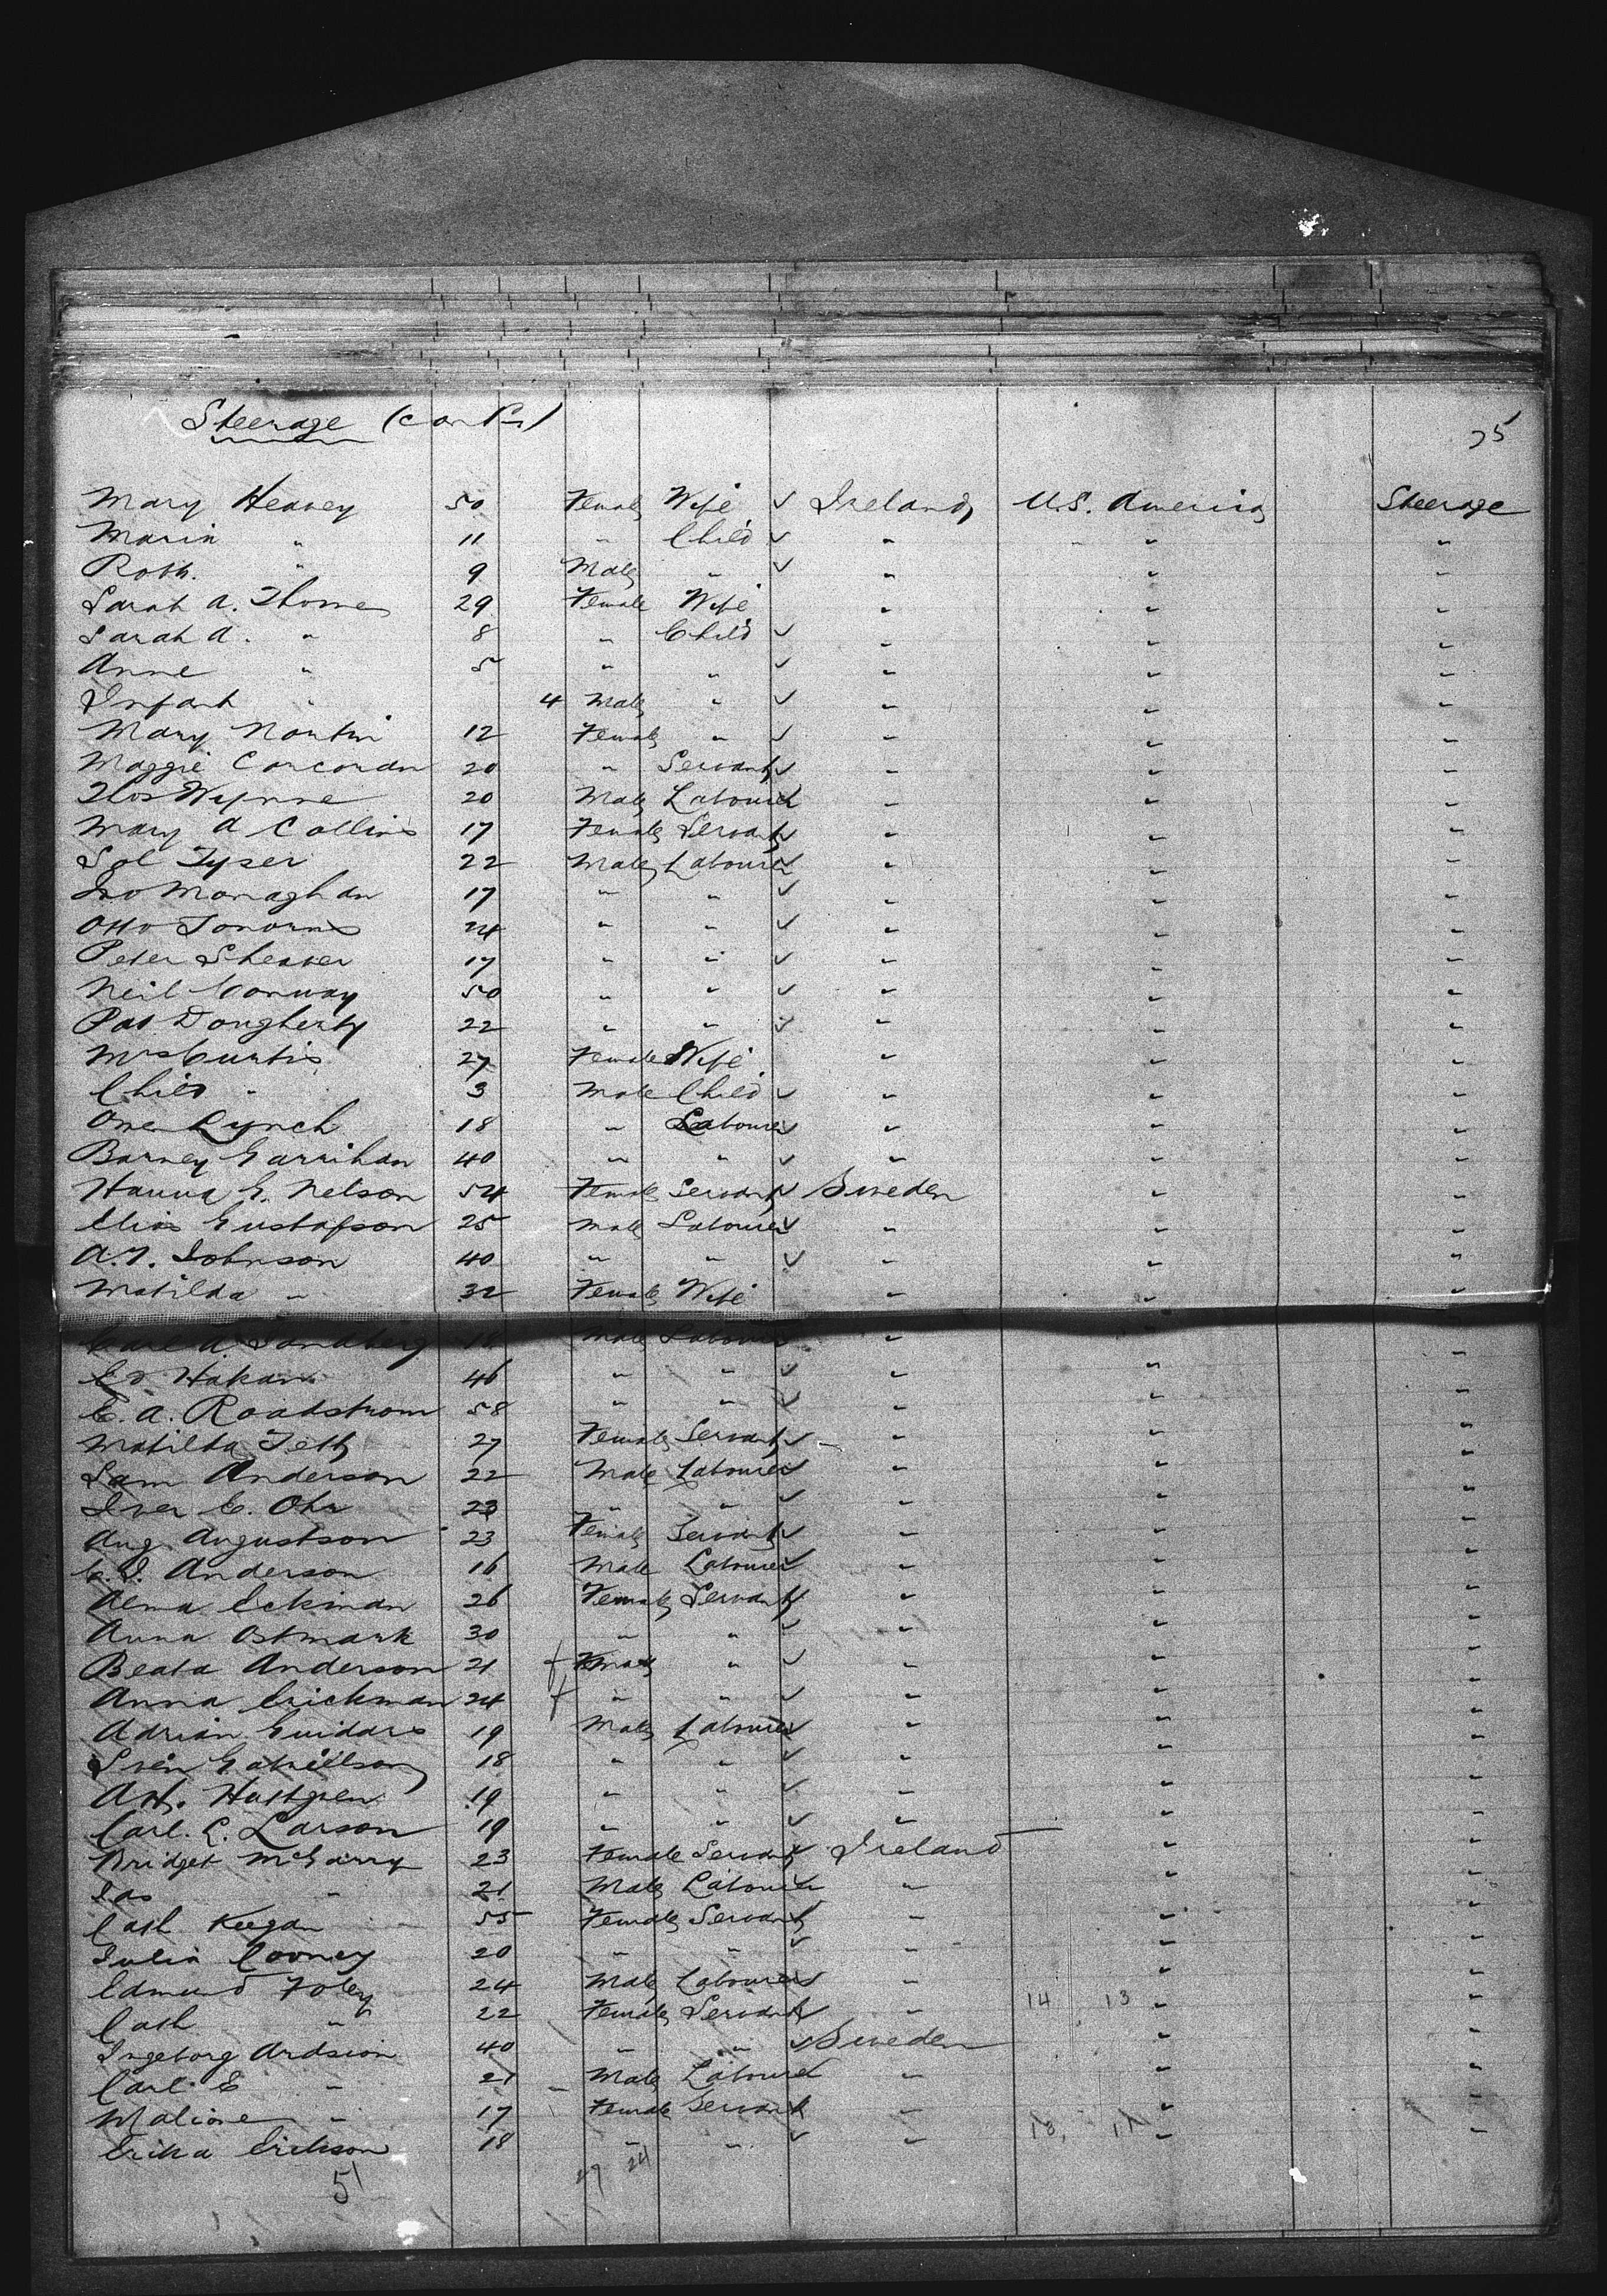 Steerage (cont'd)
25
Mary Heavey 50 Female Wife ✓ Ireland U.S. America Steerage
Maria " 11 " Child ✓ " " "
Robt. " 9 Male " ✓ " " "
Sarah A. Thomes 29 Female Wife " " "
Sarah A. " 8 " Child ✓ " " "
Anne " 5 " " ✓ " " "
Infant " 4 Male " ✓ " " "
Mary 12 Female " ✓ " " "
Maggie Corcoran 20 " Servant ✓ " " "
Thos Wynne 20 Male Labourer " " "
Mary A Collins 17 Female Servant ✓ " " "
Sol Tyser 22 Male Labourer ✓ " " "
Jno Monaghan 17 " " ✓ " " "
Otto 24 " " ✓ " " "
Peter Sheaver 17 " " ✓ " " "
Neil Conway 50 " " ✓ " " "
Pat Dougherty 22 " " ✓ " " "
Mrs Curtis 27 Female Wife " " "
Child " 3 Male Child ✓ " " "
Owen Lynch 18 " Labourer ✓ " " "
Barney Garrihan 40 " " ✓ " " "
Hanna G. Nelson 54 Female Servant ✓ Sweden " "
Elias Gustafson 25 Male Labourer ✓ " " "
A.T. Johnson 40 " " ✓ " " "
Matilda " 32 Female Wife " " "
Carl A. Sandberg 18 Male Labourer " " "
Hakan 46 " " ✓ " " "
E. A. Roadstrom 58 " " ✓ " " "
Matilda 27 Female Servant ✓ " " "
Sam Anderson 22 Male Labourer ✓ " " "
Iver C. Ohr 23 " " ✓ " " "
Aug Augustson 23 Female Servant ✓ " " "
C. J. Anderson 16 Male Labourer ✓ " " "
Alma Eckman 26 Female Servant ✓ " " "
Anna Ostmark 30 " " ✓ " " "
Beata Anderson 21 f " ✓ " " "
Anna Erickman 24 f " " ✓ " " "
Adrian 19 Male Labourer ✓ " " "
Sven 18 " " ✓ " " "
Hultgren 19 " " ✓ " " "
Carl. C. Larson 19 " " ✓ " " "
Bridget McGarry 23 Female Servant ✓ Ireland " "
Jas " 21 Male Labourer " " "
Cath Keegan 55 Female Servant " " "
Julia Cooney 20 " " ✓ " " "
Edmund Foley 24 Male Labourer ✓ " " "
Cath " 22 Female Servant ✓ " 14 13 " "
Ingeborg Ardsion 40 " " ✓ Sweden " "
Carl E " 21 Male Labourer " " "
" 17 Female Servant " " "
Erika Erickson 18 " " ✓ " 13, 11 " "
51
27 24